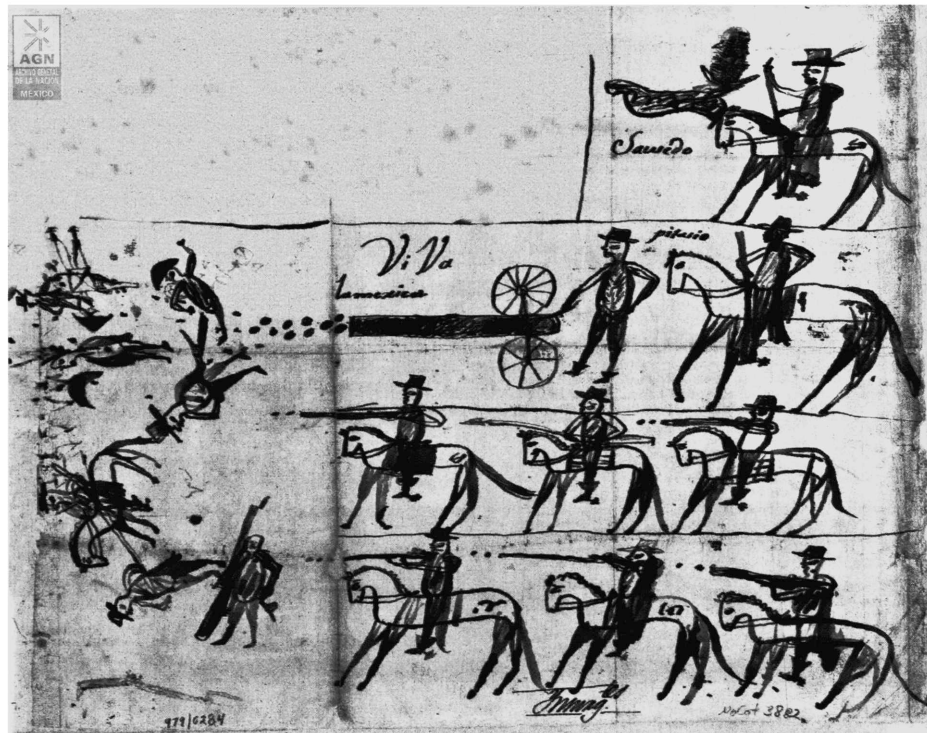 AGN
ARCHIVO GENERAL
DE LA NACIÓN
MÉXICO
Saucedo
Vi Va
lamexica
979/0284
No Cat 3882